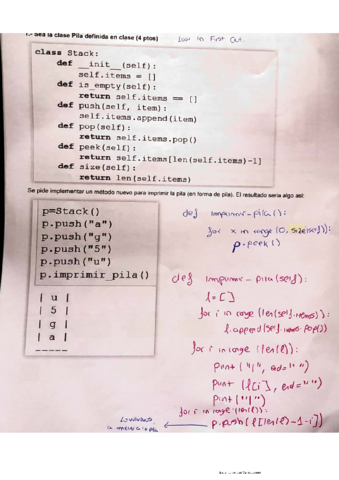 1.- Sea la clase Pila definida en clase (4 ptos)
Last In First Out.
class Stack:
def __init__(self):
self.items = []
def is_empty(self):
return self.items == []
def push(self, item):
self.items.append(item)
def pop(self):
return self.items.pop()
def peek(self):
return self.items[len(self.items)-1]
def size(self):
return len(self.items)
Se pide implementar un método nuevo para imprimir la pila (en forma de pila). El resultado sería algo así:
p=Stack()
p.push("a")
p.push("g")
p.push("5")
p.push("u")
p.imprimir_pila()
| u |
| 5 |
| g |
| a |
-----
def imprimir-pila():
for x in range (0, size(self)):
p.peek()
def imprimir-pila(self):
l=[]
for i in range (len(self.items)):
l.append(self.items.pop())
for i in range (len(l)):
print ("|", end=" ")
print (l[i], end=" ")
print ("|")
for i in range (len(l)):
p.push(l[len(l)-1-i])